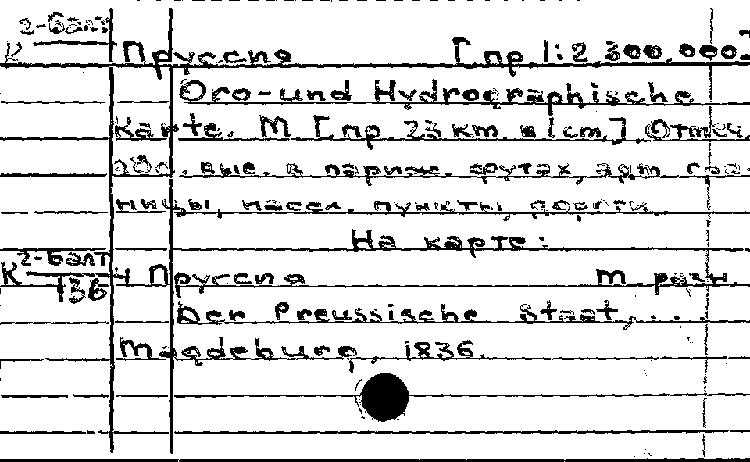 2-Балт
К Пруссия [пр. 1:2 300.000]
Oro-und Hydrographische
Karte. М [пр 23 км в 1 см.] Отмеч.
абс. выс. в париж. футах, адм гра-
ницы, насел. пункты, дороги.
На карте:
К 2-Балт
136 Ч Пруссия М разн.
Der Preussische Staat,...
Magdeburg, 1836.